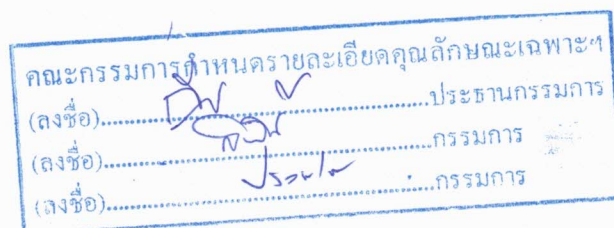 คณะกรรมการกำหนดรายละเอียดคุณลักษณะเฉพาะฯ
(ลงชื่อ)..............................................ประธานกรรมการ
(ลงชื่อ)..............................................กรรมการ
(ลงชื่อ)..............................................กรรมการ